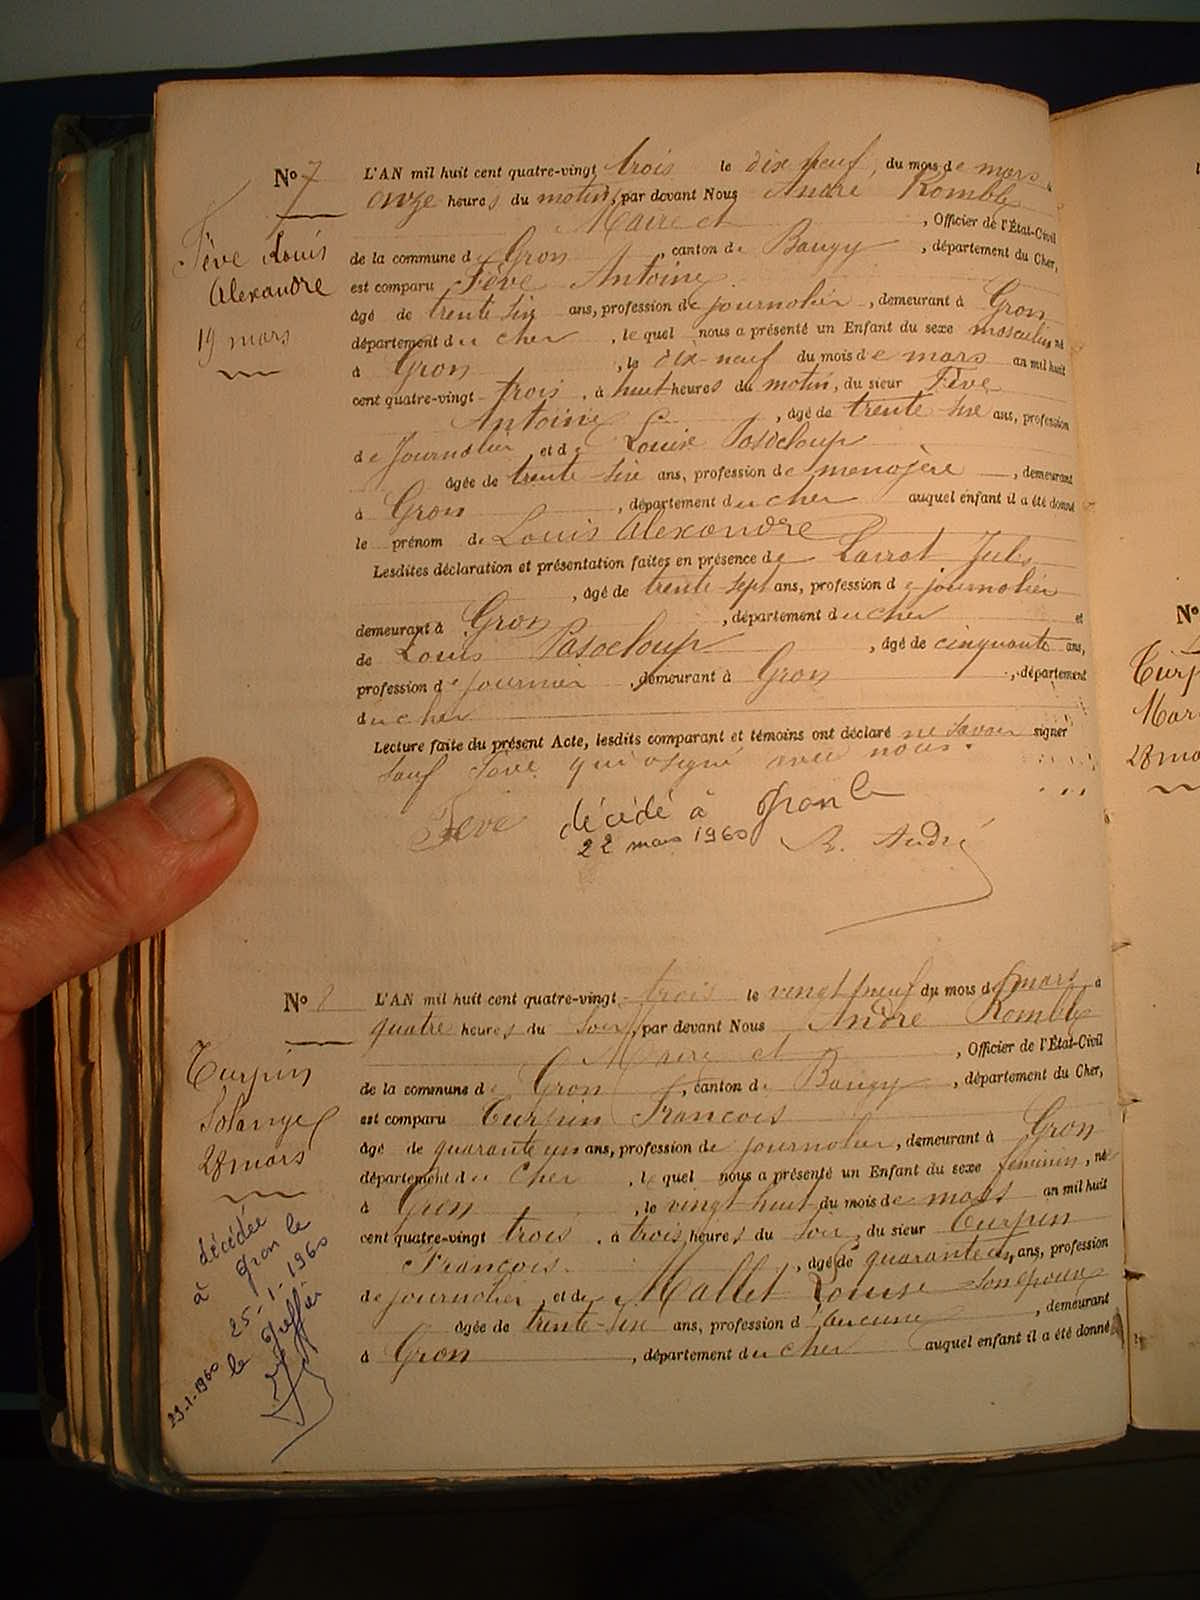 N° 7
Fève Louis
Alexandre
19 mars
L'AN mil huit cent quatre-vingt trois le dix neuf, du mois de mars à
onze heures du matin, par devant Nous André Romble
Maire et , Officier de l'État-Civil
de la commune de Gron , canton de Baugy , département du Cher,
est comparu Fève Antoine
âgé de trente six ans, profession de journalier , demeurant à Gron
département du cher , lequel nous a présenté un Enfant du sexe masculin né
à Gron , le dix-neuf du mois de mars an mil huit
cent quatre-vingt trois , à huit heures du matin, du sieur Fève
Antoine , âgé de trente six ans, profession
de Journalier et de Louise Pasdeloup
âgée de trente-six ans, profession de menajère , demeurant
à Gron , département du cher auquel enfant il a été donné
le prénom de Louis Alexandre
Lesdites déclaration et présentation faites en présence de Jules
, âgé de trente sept ans, profession de journalier
demeurant à Gron , département du cher et
de Louis Pasdeloup , âgé de cinquante ans,
profession de journier , demeurant à Gron , département
du cher
Lecture faite du présent Acte, lesdits comparant et témoins ont déclaré ne savoir signer
sauf Fève qui a signé avec nous.
Feve
décédé à Gron le
22 mars 1960
R. André
N° 8
Turpin
Solange
28 mars
décédée
à Gron le
25-1-1960
le Greffier
29-1-1960
L'AN mil huit cent quatre-vingt trois le vingt neuf du mois de mars à
quatre heures du soir, par devant Nous André Romble
Maire et , Officier de l'État-Civil
de la commune de Gron , canton de Baugy , département du Cher,
est comparu Turpin Francois
âgé de quarante un ans, profession de journalier , demeurant à Gron
département du Cher , lequel nous a présenté un Enfant du sexe féminin , né
à Gron , le vingt huit du mois de mars an mil huit
cent quatre-vingt trois , à trois heures du soir , du sieur Turpin
François , âgé de quarante un ans, profession
de journalier , et de Mallet Louise son epouse
âgée de trente-six ans, profession d'aucune , demeurant
à Gron , département du cher auquel enfant il a été donné
N°
Turp
Mar
28 ma